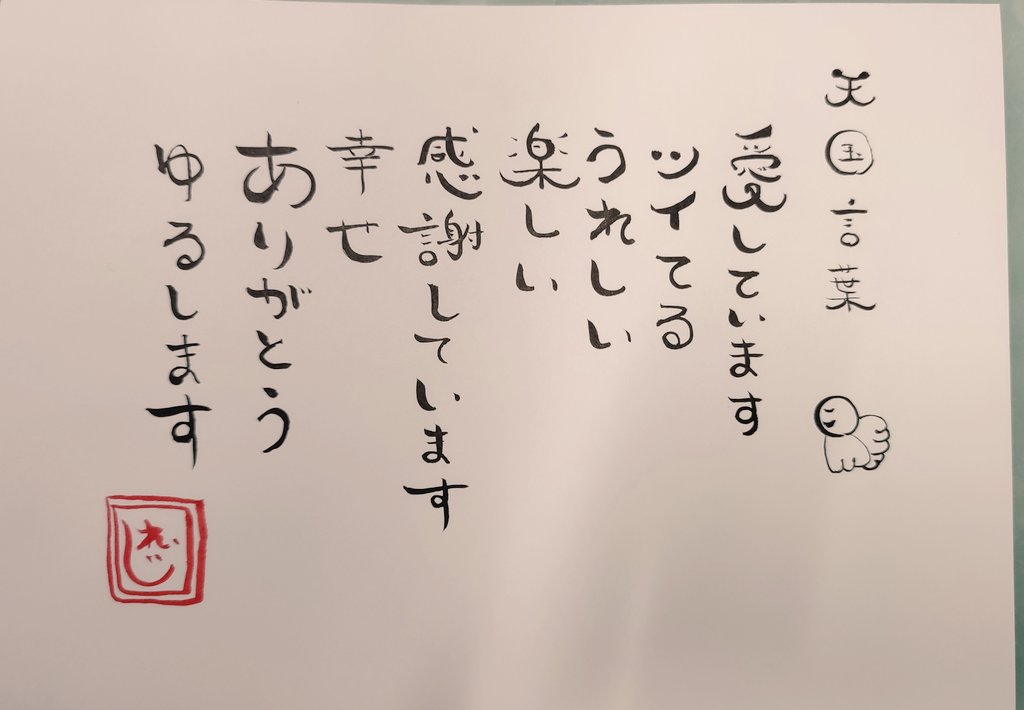 天国言葉
愛しています
ツイてる
うれしい
楽しい
感謝しています
幸せ
ありがとう
ゆるします
れいじ